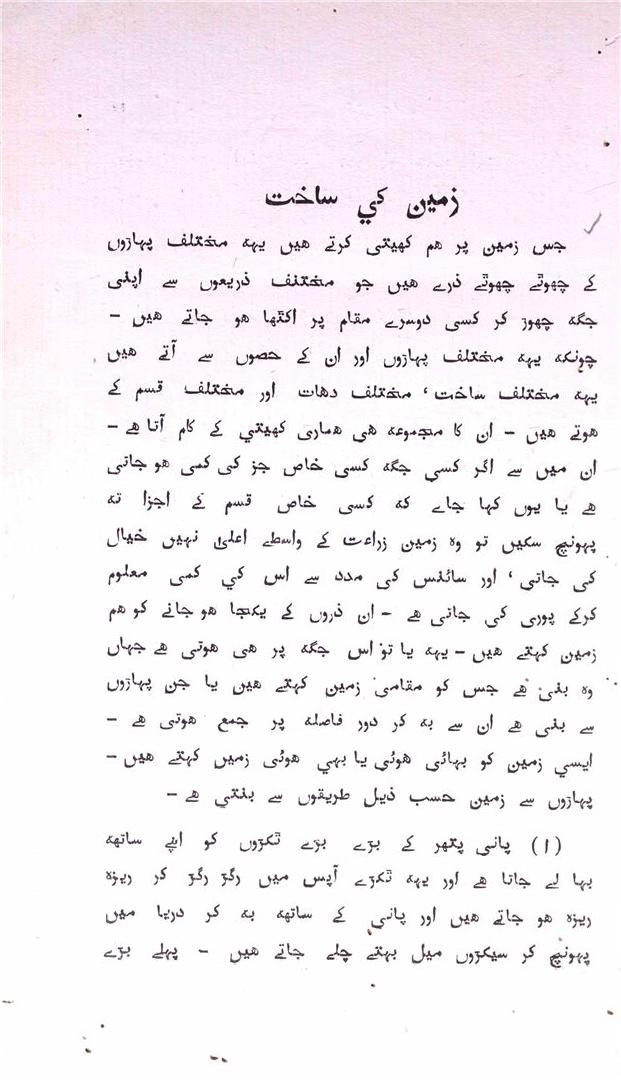 زمین کي ساخت
جس زمین پر هم کھیتی کرتے هیں یہہ مختلف پہاڑوں
کے چھوٹے چھوٹے ذرے هیں جو مختلف ذریعوں سے اپنی
جگہ چھوڑ کر کسی دوسرے مقام پر اکٹھا هو جاتے هیں –
چونکہ یہہ مختلف پہاڑوں اور ان کے حصوں سے آتے هیں
یہہ مختلف ساخت، مختلف دهات اور مختلف قسم کے
هوتے هیں – ان کا مجموعہ هی هماری کھیتي کے کام آتا هے –
ان میں سے اگر کسي جگہ کسی خاص جز کی کمی هو جاتی
هے یا یوں کہا جاے کہ کسی خاص قسم کے اجزا نہ
پہونچ سکیں تو وہ زمین زراعت کے واسطے اعلیٰ نہیں خیال
کی جاتی، اور سائنس کی مدد سے اس کي کمی معلوم
کرکے پوری کی جاتی هے – ان ذروں کے یکجا هو جانے کو هم
زمین کہتے هیں – یہہ یا تو اس جگہ پر هی هوتی هے جہاں
وہ بنی هے جس کو مقامی زمین کہتے هیں یا جن پہاڑوں
سے بنی هے ان سے بہ کر دور فاصلہ پر جمع هوتی هے –
ایسي زمین کو بہائی هوئی یا بہي هوئی زمین کہتے هیں –
پہاڑوں سے زمین حسب ذیل طریقوں سے بنتی هے –
(۱) پانی پتھر کے بڑے بڑے ٹکڑوں کو اپنے ساتھہ
بہا لے جاتا هے اور یہہ ٹکڑے آپس میں رگڑ رگڑ کر ریزہ
ریزہ هو جاتے هیں اور پانی کے ساتھہ بہ کر دریا میں
پہونچ کر سیکڑوں میل بہتے چلے جاتے هیں – پہلے بڑے